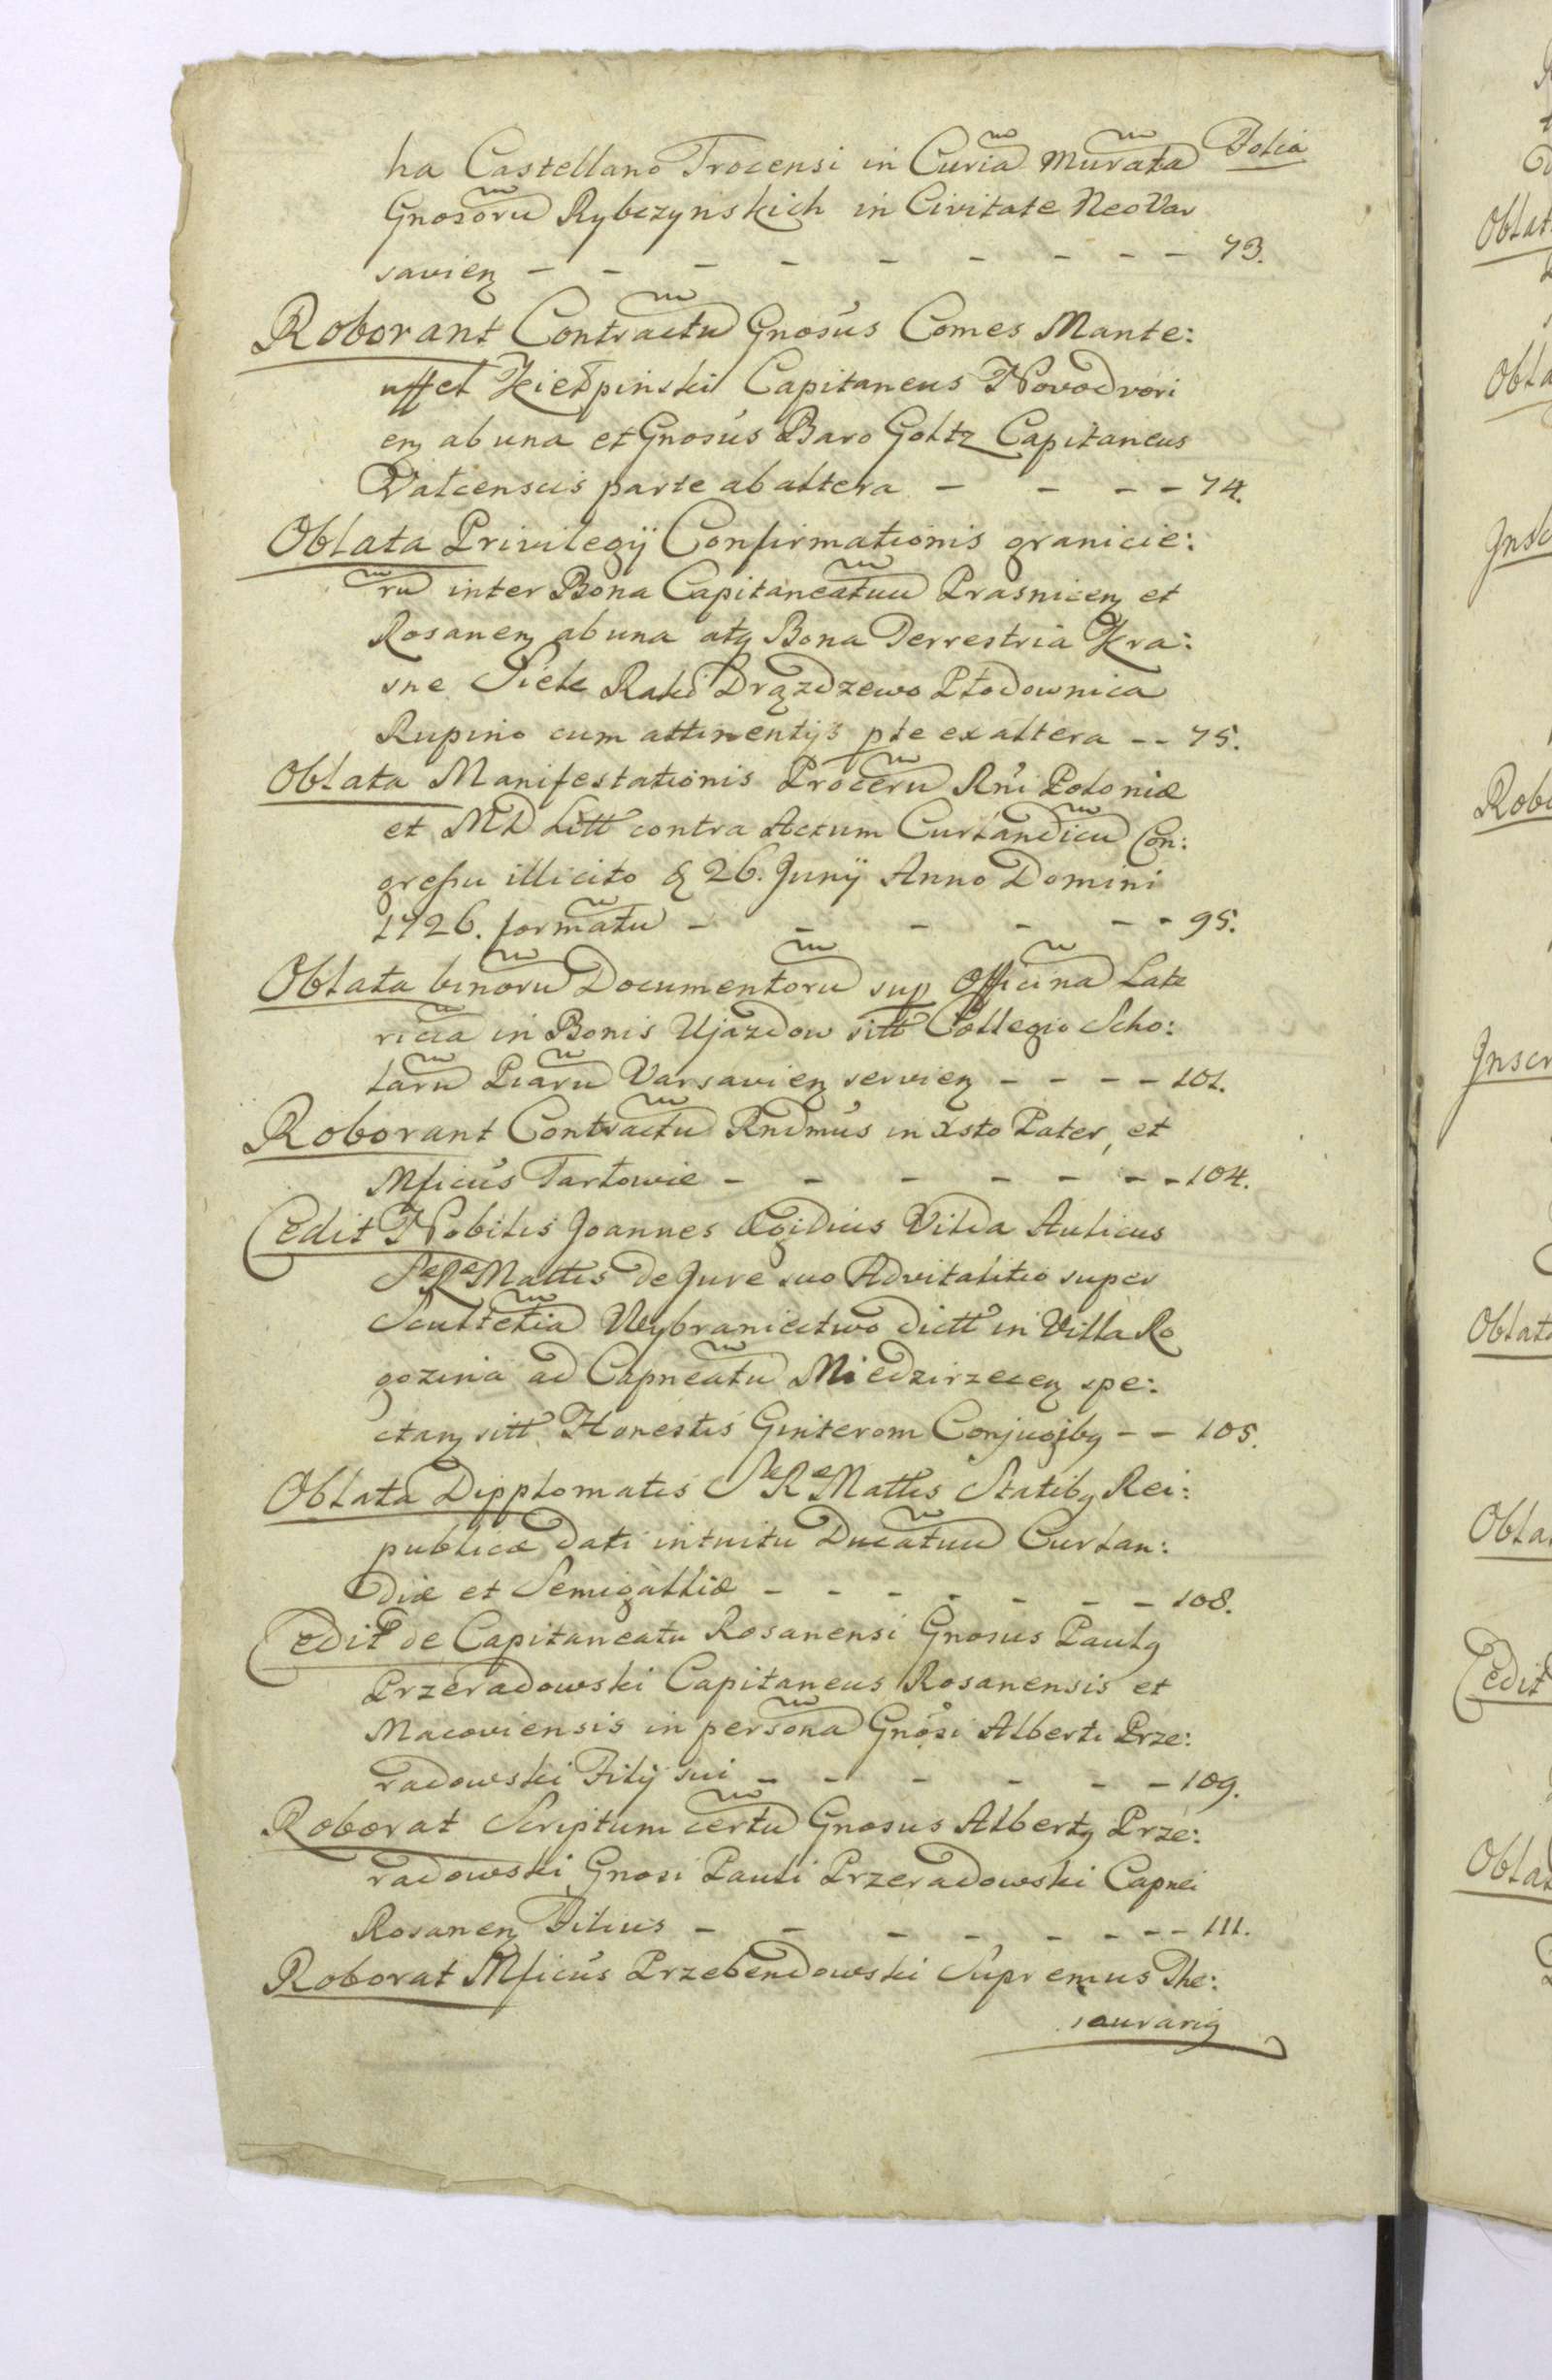 Folia
ha Castellano Trocensi in Curia Murata
Gnosoru Rybczynskich in Civitate Neo Var
savien - - - - - - - - - 73.
Roborant Contractu Gnosus Comes Mante:
uffel Kiełpinski Capitaneus Novodvori
en ab una et Gnosus Baro Goltz Capitaneus
Valcensis parte ab altera - - - - 74.
Oblata Privilegij Confirmationis granicie:
ru inter Bona Capitaneatuu Prasnicen et
Rosanen ab una atq Bona Terrestria Kra:
sne Siele Raki Drązdzewo Płodownica
Rupino cum attinentijs pte ex altera - - 75.
Oblata Manifestationis Proceru Rni Poloniæ
et MD Litt contra Actum Curlandicu Con:
gressu illicito & 26. Junij Anno Domini
1726. formatu - - - - - - 95.
Oblata binoru Documentoru sup Officina Late
ricia in Bonis Ujazdow sitt Collegio Scho:
laru Piaru Varsavien servien - - - - 101.
Roborant Contractu Rndmus in Xsto Pater, et
Mficus Tarłowie - - - - - - - 104.
Cedit Nobilis Joannes Ægidius Vilda Aulicus
S R Mattis de Jure suo Advitalitio super
Scultetia Wybraniectwo dictt in Villa Ro
gozina ad Capneatu Miedzirzecen spe:
ctan sitt Honestis Ginterom Conjugibq - - 105.
Oblata Dipplomatis S R Mattis Statibq Rei:
publicæ dati intuitu Ducatuu Curlan:
diæ et Semigalliæ - - - - - - - 108.
Cedit de Capitaneatu Rosanensi Gnosus Paulq
Przeradowski Capitaneus Rosanensis et
Macoviensis in persona Gnosi Alberti Prze:
radowski Filij sui - - - - - - 109.
Roborat Scriptum certu Gnosus Albertq Prze:
radowski Gnosi Pauli Przeradowski Capnei
Rosanen Filius - - - - - - - - 111.
Roborat Mficus Przebendowski Supremus The:
saurariq